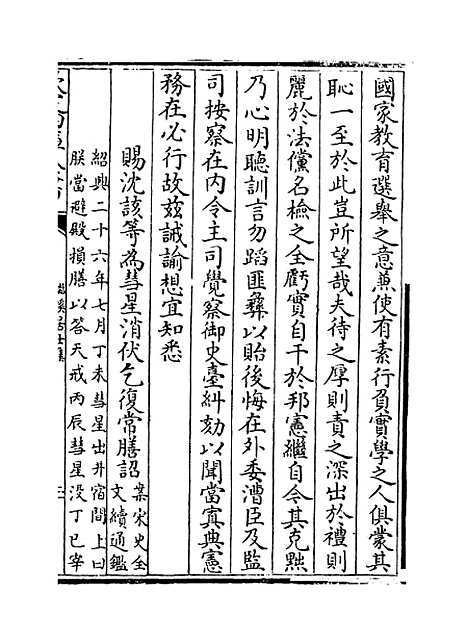 國家教育選舉之意兼使有素行負實學之人俱蒙其
恥一至於此豈所望哉夫待之厚則責之深出於禮則
麗於法儻名檢之全虧實自干於邦憲繼自令其克黙
乃心明聽訓言勿蹈匪彝以貽後悔在外委漕臣及監
司按察在内令主司覺察御史臺糾劾以聞當寘典憲
務在必行故兹誡諭想宜知悉
賜沈該等為彗星消伏乞復常膳詔
案宋史全
文續通鑑
紹興二十六年七月丁未彗星出井宿間上曰
朕當避殿損膳以答天戒丙辰彗星没丁巳宰